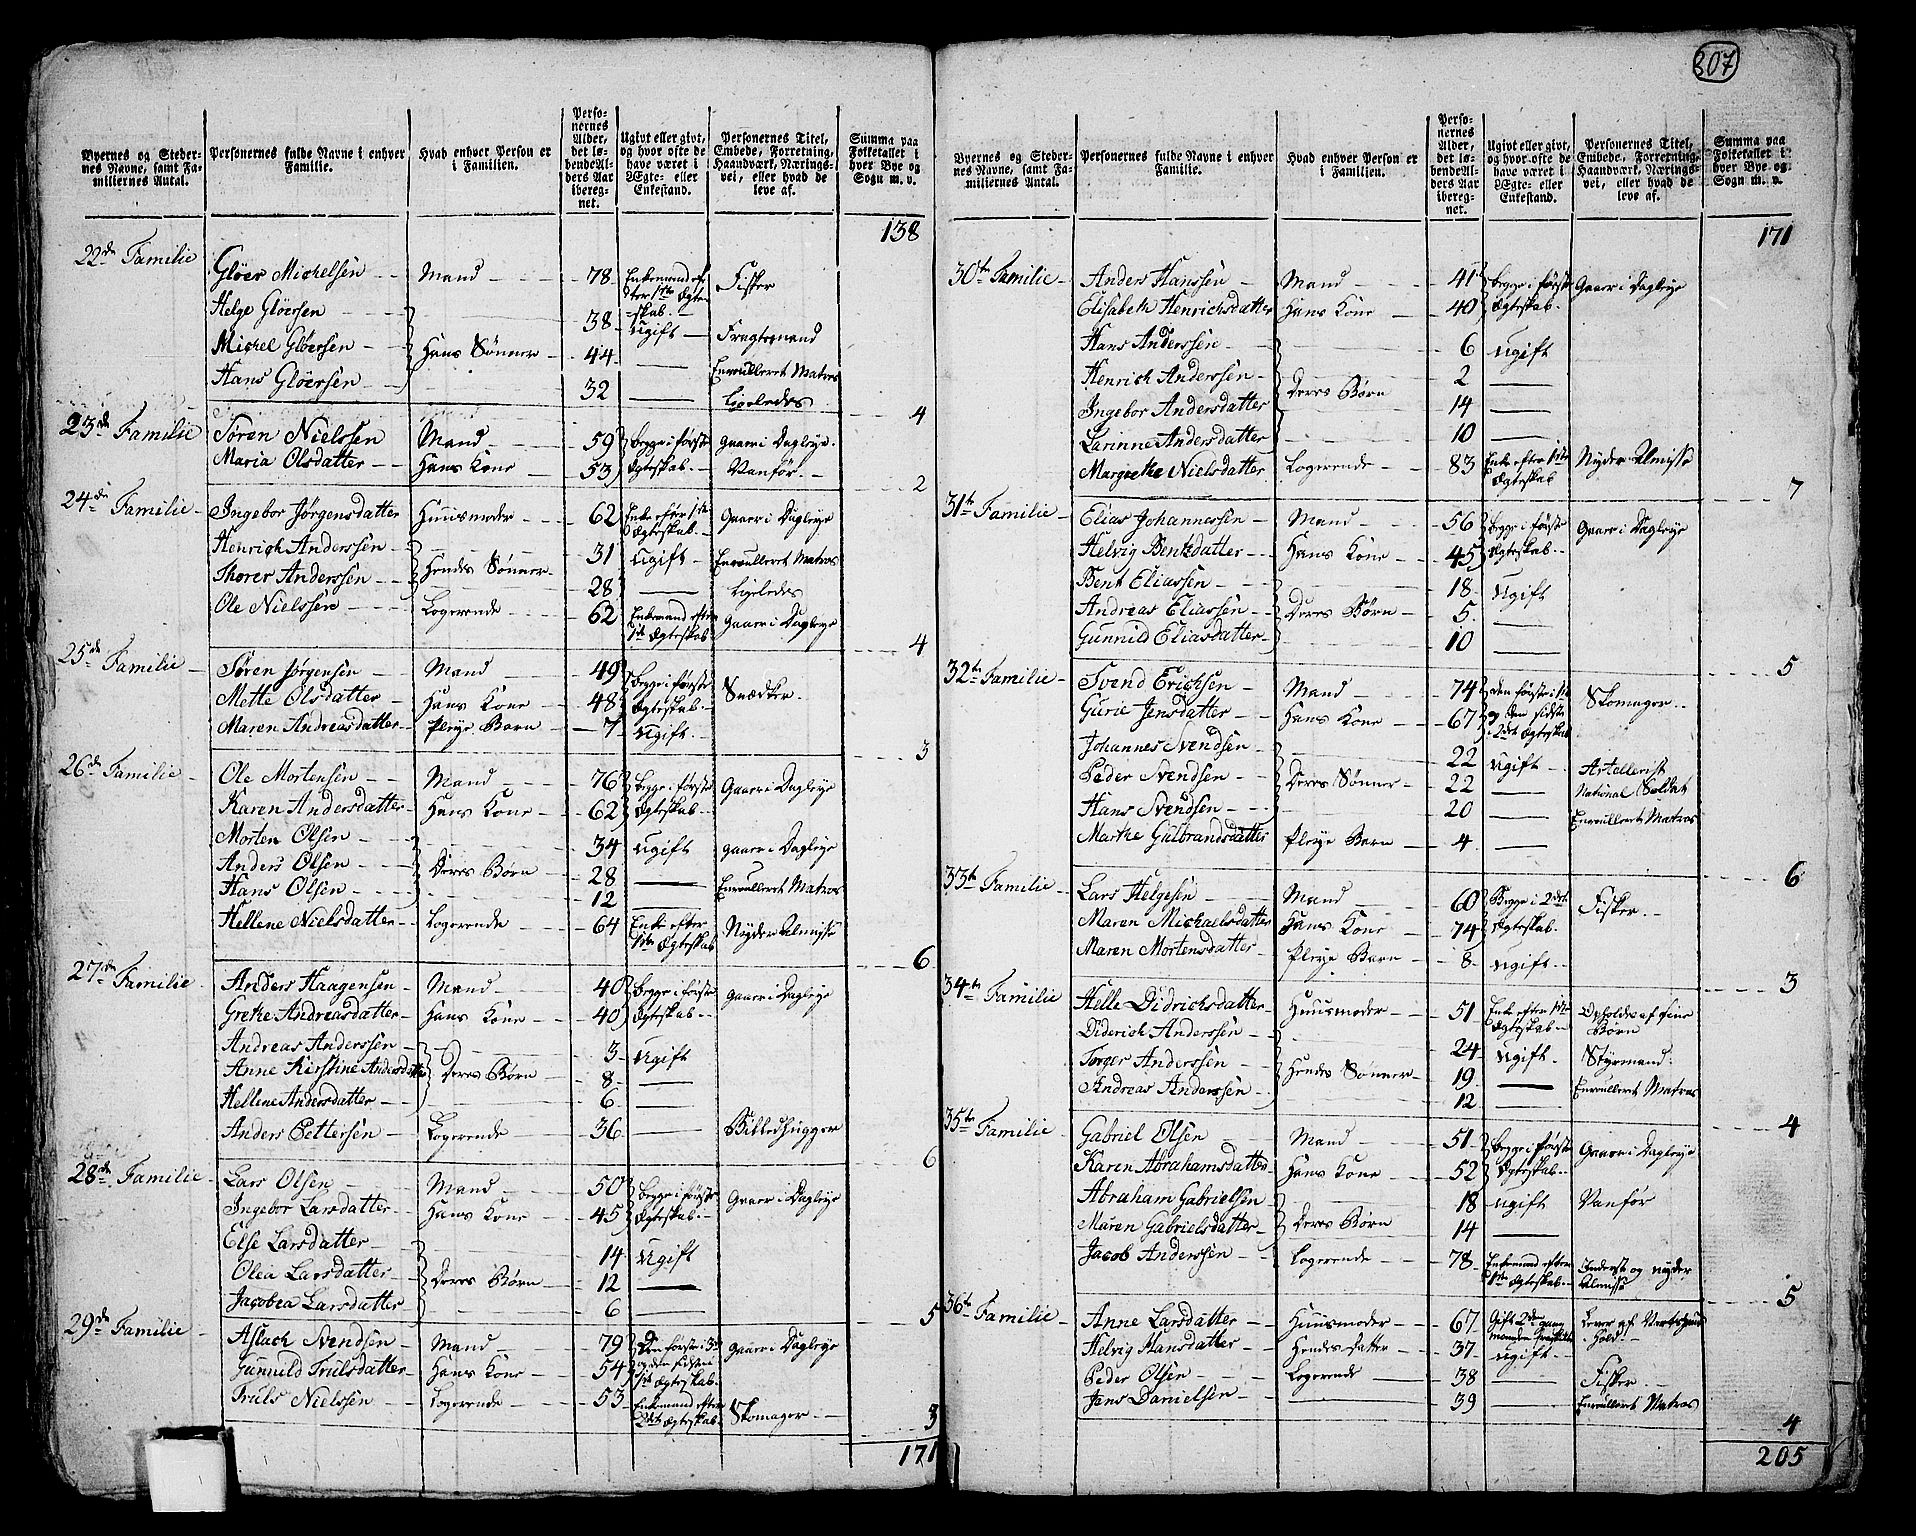 307
Byernes og Stedernes Navne, samt Familiernes Antal.
Personernes fulde Navne i enhver Familie.
Hvad enhver Person er i Familien.
Personernes Alder, det løbende Alders Aar iberegnet.
Ugivt eller givt, og hvor ofte de have været i Ægte- eller Enkestand.
Personernes Titel, Embede, Forretning, Haandværk, Næringsvei, eller hvad de leve af.
Summa paa Folketallet i hver Bye og Sogn m. v.
138
22de Familie Gløer Michelsen Mand 78 Enkemand efter 1ste Ægteskab Fisker
Helge Gløersen 38 Ugift Fragtemand
Michel Gløersen Hans Sønner 44 — Enroulleret Matros
Hans Gløersen 32 — Ligeledes
4
23de Familie Søren Nielssen Mand 59 Begge i første Gaaer i Dagleye
Maria Olsdatter Hans Kone 53 Ægteskab Vanfør
2
24de Familie Ingebor Jørgensdatter Huusmoder 62 Enke efter 1ste Ægteskab Gaaer i Dagleye
Henrich Anderssen 31 Ugift Enroulleret Matros
Thorer Anderssen Hendes Sønner 28 — Ligeledes
Ole Nielssen Logerende 62 Enkemand efter 1ste Ægteskab Gaaer i Dagleye
4
25de Familie Søren Jørgensen Mand 49 Begge i første
Mette Olsdatter Hans Kone 48 Ægteskab Snedker
Maren Andreasdatter Pleye Barn 7 Ugift
3
26de Familie Ole Mortensen Mand 76 Begge i første Gaaer i Dagleye
Karen Andersdatter Hans Kone 62 Ægteskab
Morten Olsen 34 Ugift gaaer i Dagleye
Anders Olsen Deres Børn 28 — Enroulleret Matros
Hans Olsen 12
Hellene Nielsdatter Logerende 64 Enke efter 1ste Ægteskab Nyder Almisse
6
27de Familie Anders Haagensen Mand 40 Begge i første gaaer i Dagleye
Grethe Andreasdatter Hans Kone 40 Ægteskab
Andreas Anderssen 3 Ugift
Anne Kirstine Andersdatter Deres Børn 8 —
Hellene Andersdatter 6 —
Anders Pettersen Logerende 36 — Billedhugger
6
28de Familie Lars Olsen Mand 50 Begge i første Gaaer i Dagleye
Ingebor Larsdatter Hans Kone 45 Ægteskab
Else Larsdatter 14 Ugift
Olea Larsdatter Deres Børn 12 —
Jacobea Larsdatter 6 —
5
29de Familie Aslach Svendsen Mand 79 Den første i 3die Gaaer i Dagleye
Gunnild Trulsdatter Hans Kone 54 og den sidste i 1ste Ægteskab
Truls Nielssen Logerende 53 Enkemand efter 2det Ægteskab Skomager
3
171
Byernes og Stedernes Navne, samt Familiernes Antal.
Personernes fulde Navne i enhver Familie.
Hvad enhver Person er i Familien.
Personernes Alder, det løbende Alders Aar iberegnet.
Ugivt eller givt, og hvor ofte de have været i Ægte- eller Enkestand.
Personernes Titel, Embede, Forretning, Haandværk, Næringsvei, eller hvad de leve af.
Summa paa Folketallet i hver Bye og Sogn m. v.
171
30te Familie Anders Hanssen Mand 41 Begge i første Gaaer i Dagleye
Elisabeth Henrichsdatter Hans Kone 40 Ægteskab
Hans Anderssen 6 Ugift
Henrich Anderssen Deres Børn 2 —
Ingebor Andersdatter 14 —
Larinne Andersdatter 10 —
Margrethe Nielsdatter Logerende 83 Enke efter 1ste Ægteskab Nyder Almisse
7
31te Familie Elias Johannessen Mand 56 Begge i første Gaaer i Dagleye
Helvig Bentsdatter Hans Kone 45 Ægteskab
Bent Eliassen 18 Ugift
Andreas Eliassen Deres Børn 5 —
Gunnild Eliasdatter 10 —
5
32te Familie Svend Erichsen Mand 74 Den første i 1ste Skomager
Gurie Jensdatter Hans Kone 67 og den sidste i 2det Ægteskab
Johannes Svendsen 22 Ugift Artellerist
Peder Svendsen Deres Sønner 22 — National Soldat
Hans Svendsen 20 — Enroulleret Matros
Marthe Gulbrandsdatter Pleye Barn 4 —
6
33te Familie Lars Helgesen Mand 60 Begge i 2det Fisker
Maren Michaelsdatter Hans Kone 74 Ægteskab
Maren Mortensdatter Pleye Barn 8 Ugift
3
34te Familie Helle Didrichsdatter Huusmoder 51 Enke efter 1ste Ægteskab Opholdes af sine Børn
Diderich Anderssen 24 Ugift Styrmand
Torger Anderssen Hendes Sønner 19 — Enroulleret Matros
Andreas Anderssen 12 —
4
35te Familie Gabriel Olsen Mand 51 Begge i første Gaaer i Dagleye
Karen Abrahamsdatter Hans Kone 52 Ægteskab
Abraham Gabrielsen 18 Ugift Vanfør
Maren Gabrielsdatter Deres Børn 14 —
Jacob Anderssen Logerende 78 Enkemand efter 1ste Ægteskab Inderst og nyder Almisse
5
36te Familie Anne Larsdatter Huusmoder 67 Gift 2den gang Lever af Vertshuushold
Helvig Hansdatter Hendes datter 37 Ugift
Peder Olsen Logerende 38 — Fisker
Jens Danielsen — 39 — Enroulleret Matros
4
205